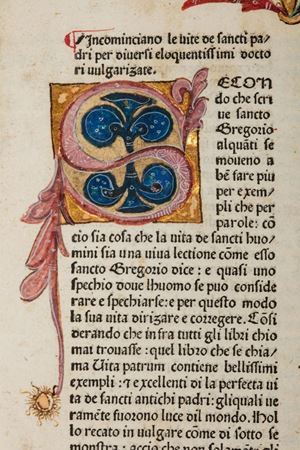 Incominciano le uite de sancti pa
dri per diuersi eloquentissimi docto
ri uulgarizate.
SECON
do che scri
ue sancto
Gregorio
alquãti se
moueno a
bẽ fare piu
per exem⸗
pli che per
parole: cõ
cio sia cosa che la uita de sancti huo⸗
mini sia una uiua lectione cõme esso
sancto Gregorio dice: e quasi uno
spechio doue lhuomo se puo conside
rare e spechiarse: e per questo modo
la sua uita dirizare e corregere. Cõsi
derando che infra tutti gli libri chio
mai trouasse: quel libro che se chia⸗
ma Uita patrum contiene bellissimi
exempli: ⁊ excellenti de la perfecta ui
ta de sancti antichi padri: gliquali ue
ramẽte fuorono luce dil mondo. Hol
lo recato in uulgare cõme di sotto se
monstra: accio che non solamẽte gli